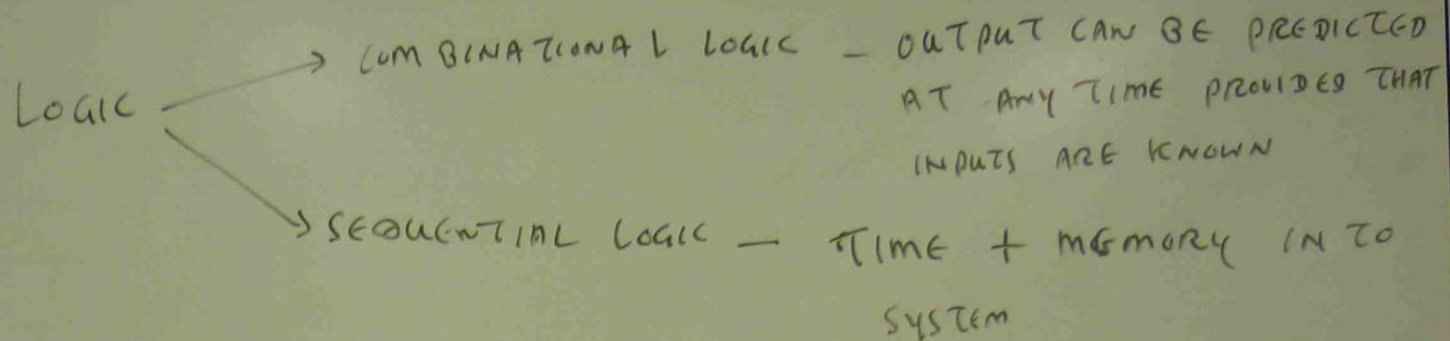 LOGIC → COMBINATIONAL LOGIC — OUTPUT CAN BE PREDICTED
AT ANY TIME PROVIDED THAT
INPUTS ARE KNOWN
→ SEQUENTIAL LOGIC — TIME + MEMORY IN TO
SYSTEM